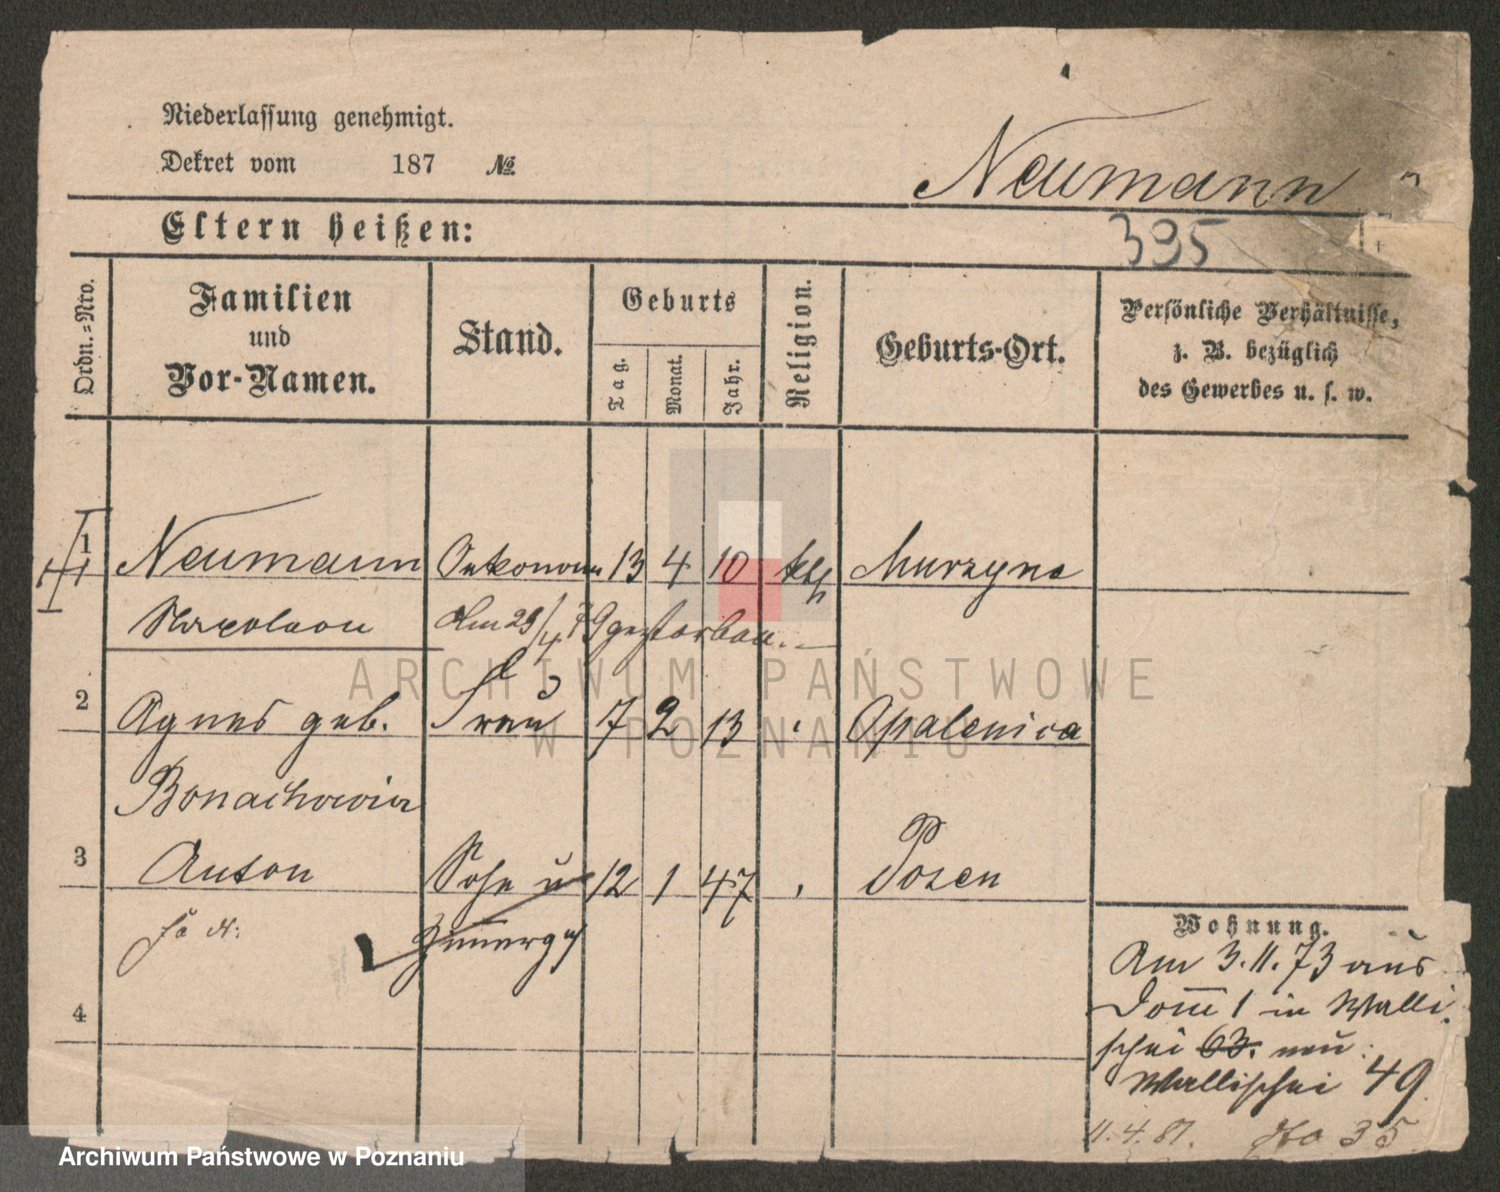 Niederlassung genehmigt.
Dekret vom 187 №
Neumann
Eltern heißen:
395
Ordn.-Nro.
Familien und Vor-Namen.
Stand.
Geburts
Tag.
Monat.
Jahr.
Religion.
Geburts-Ort.
Persönliche Verhältnisse,
z. B. bezüglich
des Gewerbes u. s. w.
1 Neumann Oekonom 13 4 10 kth Murzyno
Napoleon Am 29/4 79 gestorben.
2 Agnes geb. Frau 7 2 13 Opalenica
Bonachowicz
3 Anton Sohn u 12 1 47 Posen
4
Wohnung.
Am 3.11.73 aus
Dom 1 in Walli
schei 63. neu:
Wallischei 49
11.4.81. No 35
ARCHIWUM PAŃSTWOWE
W POZNANIU
Archiwum Państwowe w Poznaniu